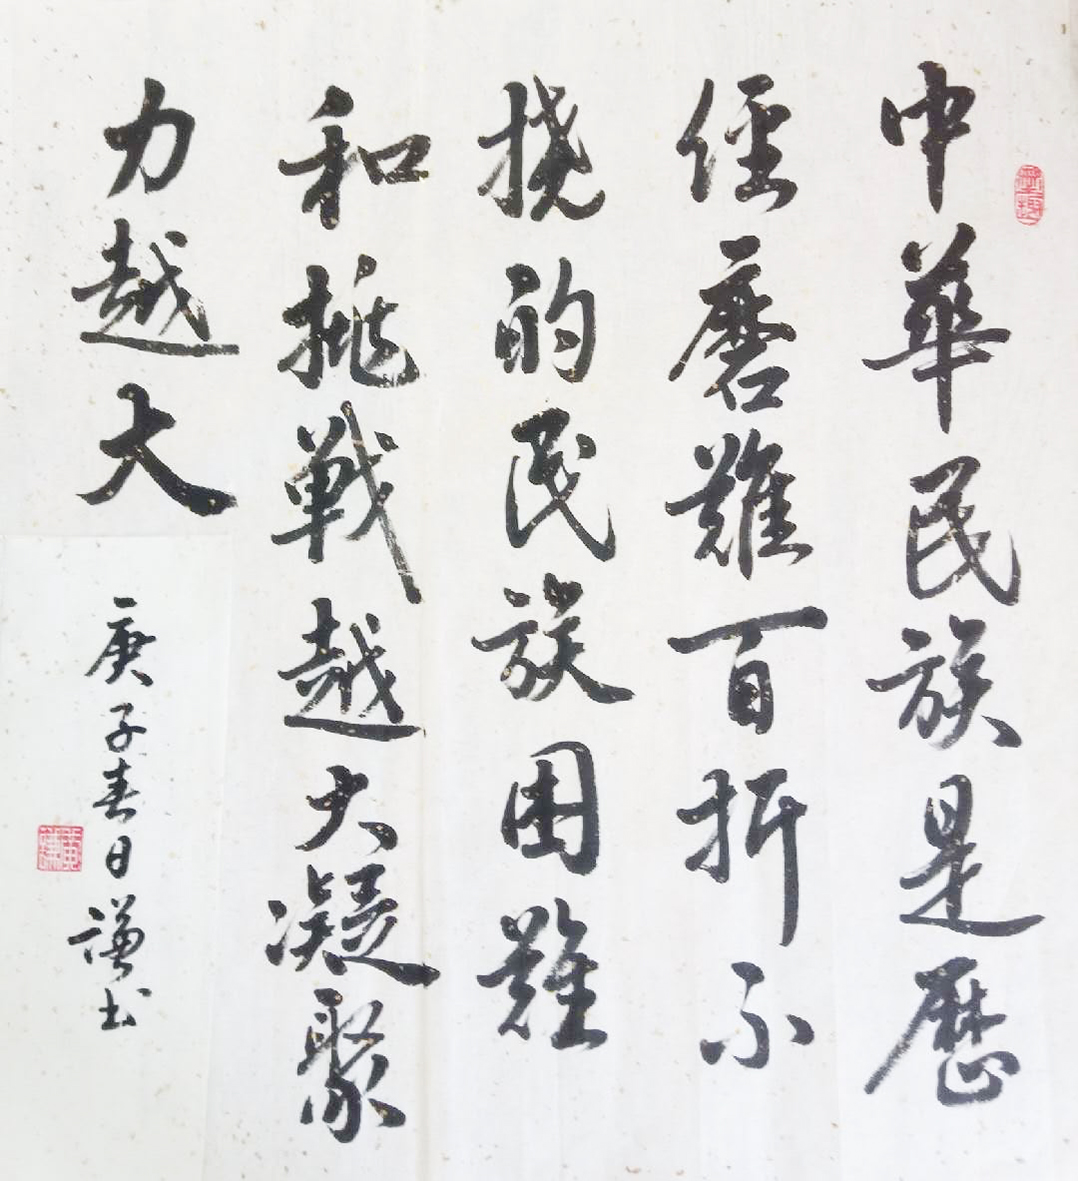 中華民族是歷
經磨難百折不
撓的民族困難
和挑戰越大凝聚
力越大
庚子春日謙书